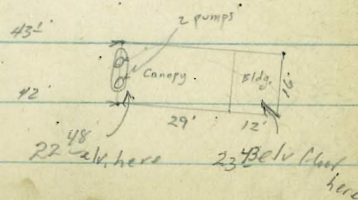 2 pumps
43'
Canopy
Bldg.
16'
42'
29'
12'
22 48 elv. here
23 48 elv floor
here